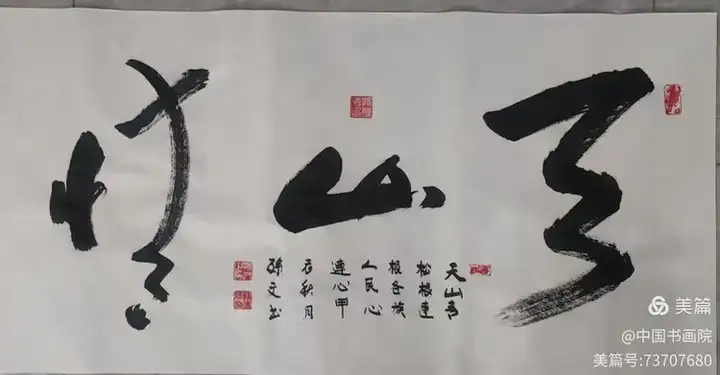 天山情
天山青
松根連
根各族
人民心
連心甲
辰秋月
孫文书
美篇
@中国书画院
美篇号:73707680